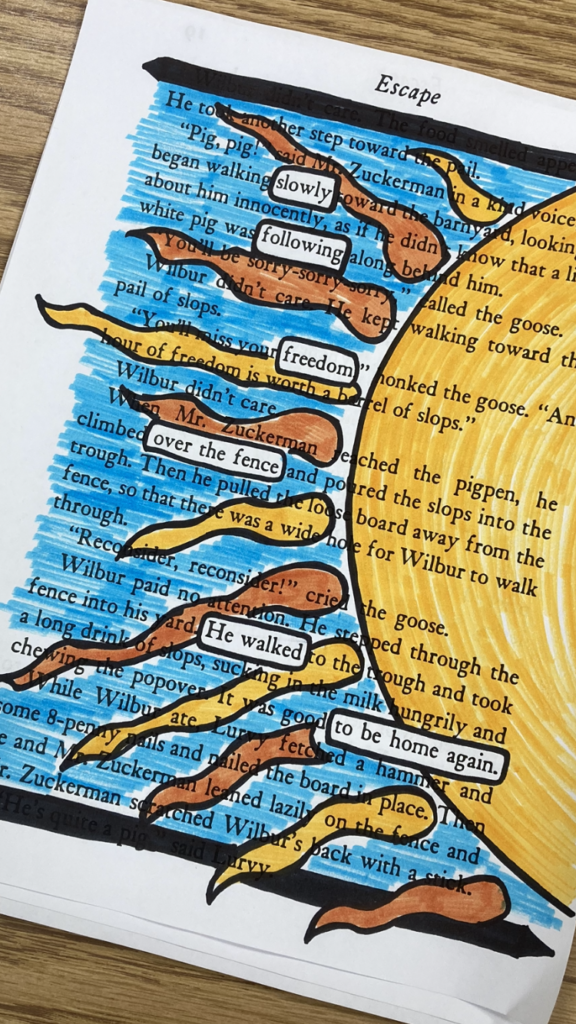 Escape
Wilbur didn't care. The food smelled appe
He took another step toward the pail.
"Pig, pig!" said Mr. Zuckerman in a kind voice
began walking slowly toward the barnyard, lookin
about him innocently, as if he didn't know that a li
white pig was following along behind him.
"You'll be sorry-sorry-sorry," called the goose.
Wilbur didn't care. He kept walking toward th
pail of slops.
"You'll miss your freedom," honked the goose. "An
hour of freedom is worth a barrel of slops."
Wilbur didn't care.
When Mr. Zuckerman reached the pigpen, he
climbed over the fence and poured the slops into the
trough. Then he pulled the loose board away from the
fence, so that there was a wide hole for Wilbur to walk
through.
"Reconsider, reconsider!" cried the goose.
Wilbur paid no attention. He stepped through the
fence into his yard. He walked to the trough and took
a long drink of slops, sucking in the milk hungrily and
chewing the popover. It was good to be home again.
While Wilbur ate, Lurvy fetched a hammer and
some 8-penny nails and nailed the board in place. Then
e and Mr. Zuckerman leaned lazily on the fence and
r. Zuckerman scratched Wilbur's back with a stick.
"He's quite a pig," said Lurvy.